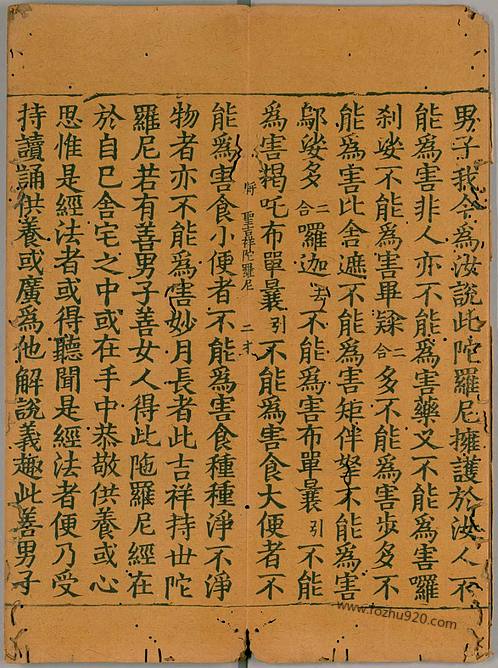 男子我今為汝說此陀羅尼擁護於汝人不
能為害非人亦不能為害藥叉不能為害囉
刹娑不能為害畢隸二合多不能為害步多不
能為害比舍遮不能為害矩伴拏不能為害
鄔娑多二合囉迦去不能為害布單曩引不能
為害羯吒布單曩引不能為害食大便者不
聖吉祥陀羅尼 二
能為害食小便者不能為害食種種淨不淨
物者亦不能為害妙月長者此吉祥持世陀
羅尼若有善男子善女人得此陁羅尼經在
於自己舍宅之中或在手中恭敬供養或心
思惟是經法者或得聽聞是經法者便乃受
持讀誦供養或廣為他解說義趣此善男子
www.fozhu920.com